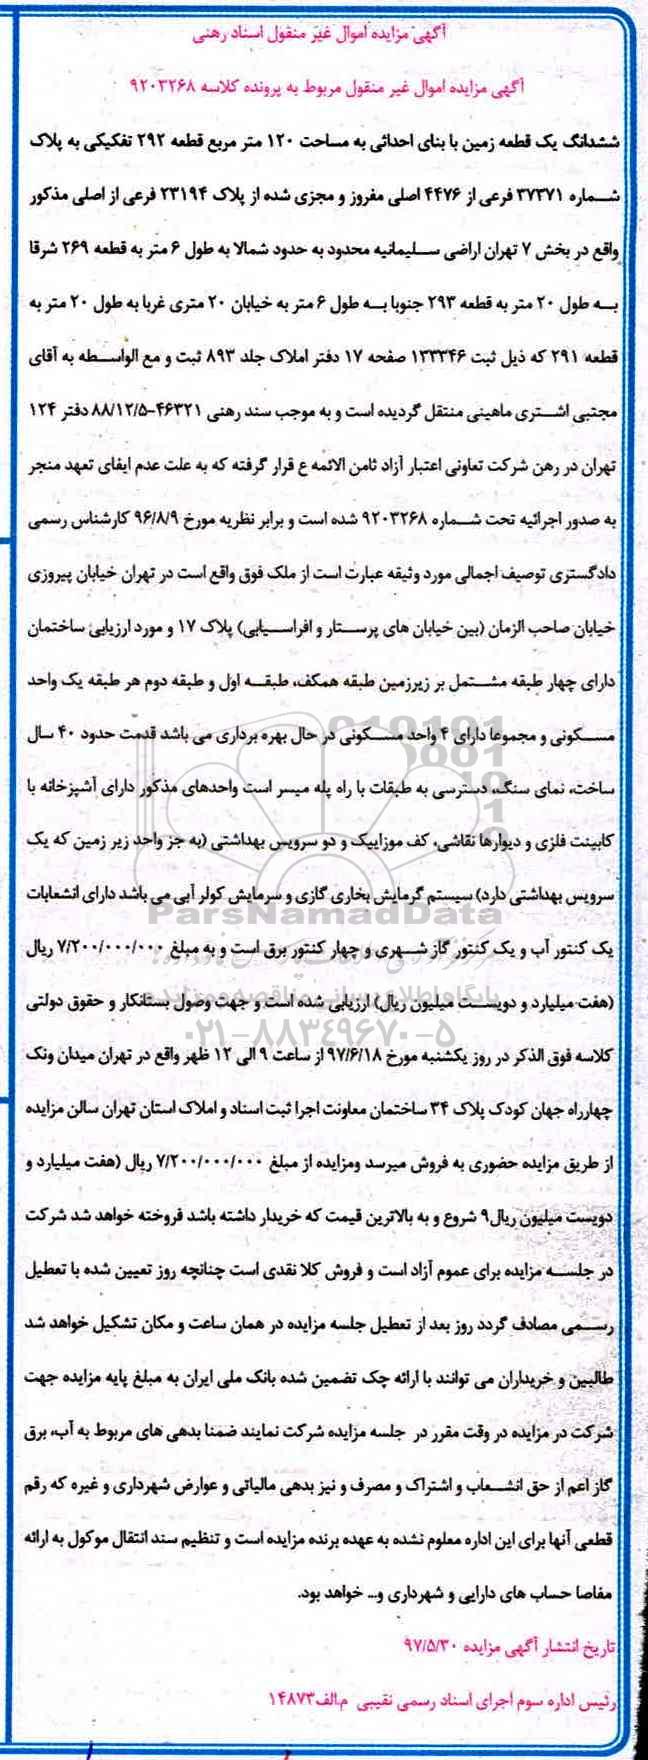 آگهی مزایده اموال غیر منقول اسناد رهنی
آگهی مزایده اموال غیر منقول مربوط به پرونده کلاسه ۹۲۰۳۲۶۸
ششدانگ یک قطعه زمین با بنای احداثی به مساحت ۱۲۰ متر مربع قطعه ۲۹۲ تفکیکی به پلاک
شماره ۳۷۳۷۱ فرعی از ۴۴۷۶ اصلی مفروز و مجزی شده از پلاک ۲۳۱۹۴ فرعی از اصلی مذکور
واقع در بخش ۷ تهران اراضی سلیمانیه محدود به حدود شمالا به طول ۶ متر به قطعه ۲۶۹ شرقا
به طول ۲۰ متر به قطعه ۲۹۳ جنوبا به طول ۶ متر به خیابان ۲۰ متری غربا به طول ۲۰ متر به
قطعه ۲۹۱ که ذیل ثبت ۱۳۳۳۴۶ صفحه ۱۷ دفتر املاک جلد ۸۹۳ ثبت و مع الواسطه به آقای
مجتبی اشتری ماهینی منتقل گردیده است و به موجب سند رهنی ۴۶۳۲۱-۸۸/۱۲/۵ دفتر ۱۲۴
تهران در رهن شرکت تعاونی اعتبار آزاد ثامن الائمه ع قرار گرفته که به علت عدم ایفای تعهد منجر
به صدور اجرائیه تحت شماره ۹۲۰۳۲۶۸ شده است و برابر نظریه مورخ ۹۶/۸/۹ کارشناس رسمی
دادگستری توصیف اجمالی مورد وثیقه عبارت است از ملک فوق واقع است در تهران خیابان پیروزی
خیابان صاحب الزمان (بین خیابان های پرستار و افراسیابی) پلاک ۱۷ و مورد ارزیابی ساختمان
دارای چهار طبقه مشتمل بر زیرزمین طبقه همکف، طبقه اول و طبقه دوم هر طبقه یک واحد
مسکونی و مجموعا دارای ۴ واحد مسکونی در حال بهره برداری می باشد قدمت حدود ۴۰ سال
ساخت، نمای سنگ، دسترسی به طبقات با راه پله میسر است واحدهای مذکور دارای آشپزخانه با
کابینت فلزی و دیوارها نقاشی، کف موزاییک و دو سرویس بهداشتی (به جز واحد زیر زمین که یک
سرویس بهداشتی دارد) سیستم گرمایش بخاری گازی و سرمایش کولر آبی می باشد دارای انشعابات
ParsNamadData
یک کنتور آب و یک کنتور گاز شهری و چهار کنتور برق است و به مبلغ ۷/۲۰۰/۰۰۰/۰۰۰ ریال
(هفت میلیارد و دویست میلیون ریال) ارزیابی شده است و جهت وصول بستانکار و حقوق دولتی
۰۲۱-۸۸۳۴۹۶۷۰-۵
کلاسه فوق الذکر در روز یکشنبه مورخ ۹۷/۶/۱۸ از ساعت ۹ الی ۱۲ ظهر واقع در تهران میدان ونک
چهارراه جهان کودک پلاک ۳۴ ساختمان معاونت اجرا ثبت اسناد و املاک استان تهران سالن مزایده
از طریق مزایده حضوری به فروش میرسد ومزایده از مبلغ ۷/۲۰۰/۰۰۰/۰۰۰ ریال (هفت میلیارد و
دویست میلیون ریال۹ شروع و به بالاترین قیمت که خریدار داشته باشد فروخته خواهد شد شرکت
در جلسه مزایده برای عموم آزاد است و فروش کلا نقدی است چنانچه روز تعیین شده با تعطیل
رسمی مصادف گردد روز بعد از تعطیل جلسه مزایده در همان ساعت و مکان تشکیل خواهد شد
طالبین و خریداران می توانند با ارائه چک تضمین شده بانک ملی ایران به مبلغ پایه مزایده جهت
شرکت در مزایده در وقت مقرر در جلسه مزایده شرکت نمایند ضمنا بدهی های مربوط به آب، برق
گاز اعم از حق انشعاب و اشتراک و مصرف و نیز بدهی مالیاتی و عوارض شهرداری و غیره که رقم
قطعی آنها برای این اداره معلوم نشده به عهده برنده مزایده است و تنظیم سند انتقال موکول به ارائه
مفاصا حساب های دارایی و شهرداری و... خواهد بود.
تاریخ انتشار آگهی مزایده ۹۷/۵/۳۰
رئیس اداره سوم اجرای اسناد رسمی نقیبی م.الف۱۴۸۷۳